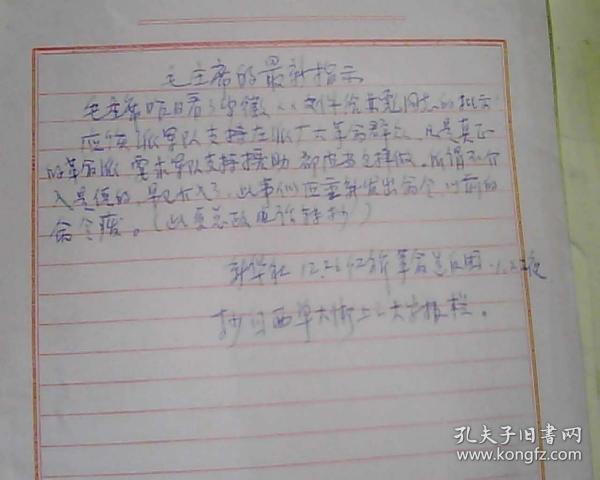 毛主席的最新指示
毛主席昨日看了安徽 文件给林彪同志的批示
应该派军队支持左派广大革命群众 凡是真正
的革命派 要求军队支持援助 都应当这样做.所谓不介
入是假的,早已介入了.此事们应重新发出命令 以前的
命令废。(此
新华社 12.26 革命造反团.1.22夜
抄自西单大街上大字报栏.
孔夫子旧书网
www.kongfz.com